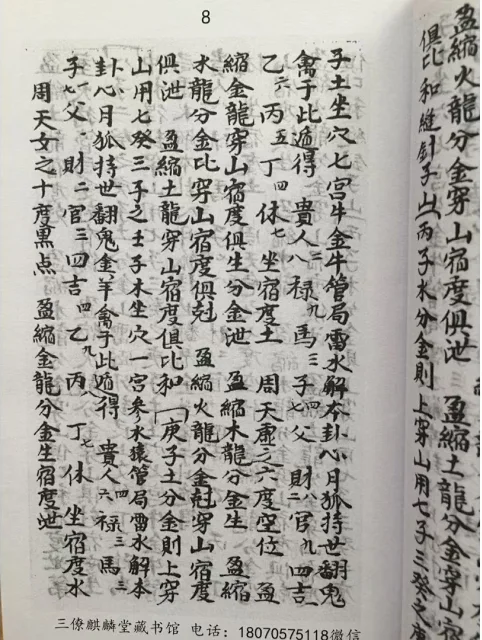 盈縮火龍分金穿山宿度俱泄 盈縮土龍分金穿山宿
俱比和縫針子山丙子水分金則上穿山用七子三癸之
8
子土坐穴七宮牛金牛管局雷水解本卦心月狐持世翻鬼
禽于此遁得 貴人二八祿九馬三子七父四財二八官九四吉
乙六丙五丁四休七坐宿度土 周天虛之六度空位 盈
縮金龍穿山宿度俱生分金泄 盈縮木龍分金生 盈縮
水龍分金比穿山宿度俱尅 盈縮火龍分金尅穿山宿度
俱泄 盈縮土龍穿山宿度俱比和 庚子土分金則上穿
山用七癸三子之壬子木坐穴一宮參水猿管局雷水解本
卦心月狐持世翻鬼金羊禽于此遁得 貴人四六祿三馬三
子七父一財二官三四吉四九乙九丙 丁七休 坐宿度水
周天女之十度黑点 盈縮金龍分金生宿度泄
三僚麒麟堂藏书馆 电话：18070575118微信